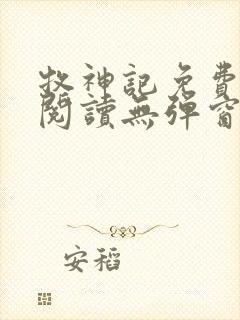 牧神記免費
閱讀無彈窗
安稻